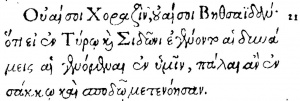 Οὐαί σοι Χοραζὶν, ȣαί σοι Βηθσαϊδά· 21
ὅτι εἰ ἐν Τύρῳ ϗ Σιδῶνι ἐγένοντο αἱ δυνά
μεις αἱ γενόμεναι ἐν ὑμῖν, πάλαι ἂν ἐν
σάκκῳ ϗ σποδῷ μετενόησαν.